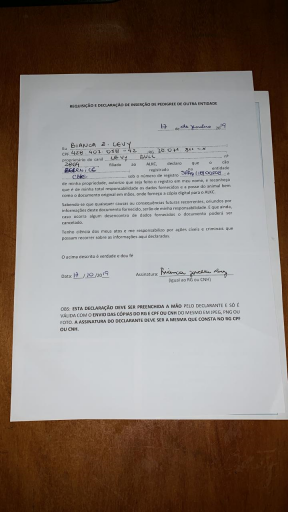 REQUISIÇÃO E DECLARAÇÃO DE INSERÇÃO DE PEDIGREE DE OUTRA ENTIDADE
17 de outubro de
Eu BIANCA Z. LEVY
CPF
proprietário do canil LEVY BULL
filiado ao ALKC, declaro que o cão
registrado entidade
CNKC sob o número de registro
de minha propriedade, autorizo que seja feito o registro em meu nome, e reconheço
que é de minha total responsabilidade os dados fornecidos e a posse do animal bem
como o documento original em mãos, onde forneço a cópia digital para o ALKC.
Sabendo-se que quaisquer causas ou consequências futuras recorrentes, oriundos por
informações deste documento fornecido, serão de minha responsabilidade. E que ainda,
caso ocorra algum desencontro de dados fornecidos o documento poderá ser
cancelado.
Tenho ciência dos meus atos e me responsabilizo por ações cíveis e criminais que
possam recorrer sobre as informações aqui declaradas.
O acima descrito é verdade e dou fé
Data Assinatura
(igual ao RG ou CNH)
OBS: ESTA DECLARAÇÃO DEVE SER PREENCHIDA A MÃO PELO DECLARANTE E SÓ É
VÁLIDA COM O ENVIO DAS CÓPIAS DO RG E CPF OU CNH DO MESMO EM JPEG, PNG OU
FOTO. A ASSINATURA DO DECLARANTE DEVE SER A MESMA QUE CONSTA NO RG CPF
OU CNH.